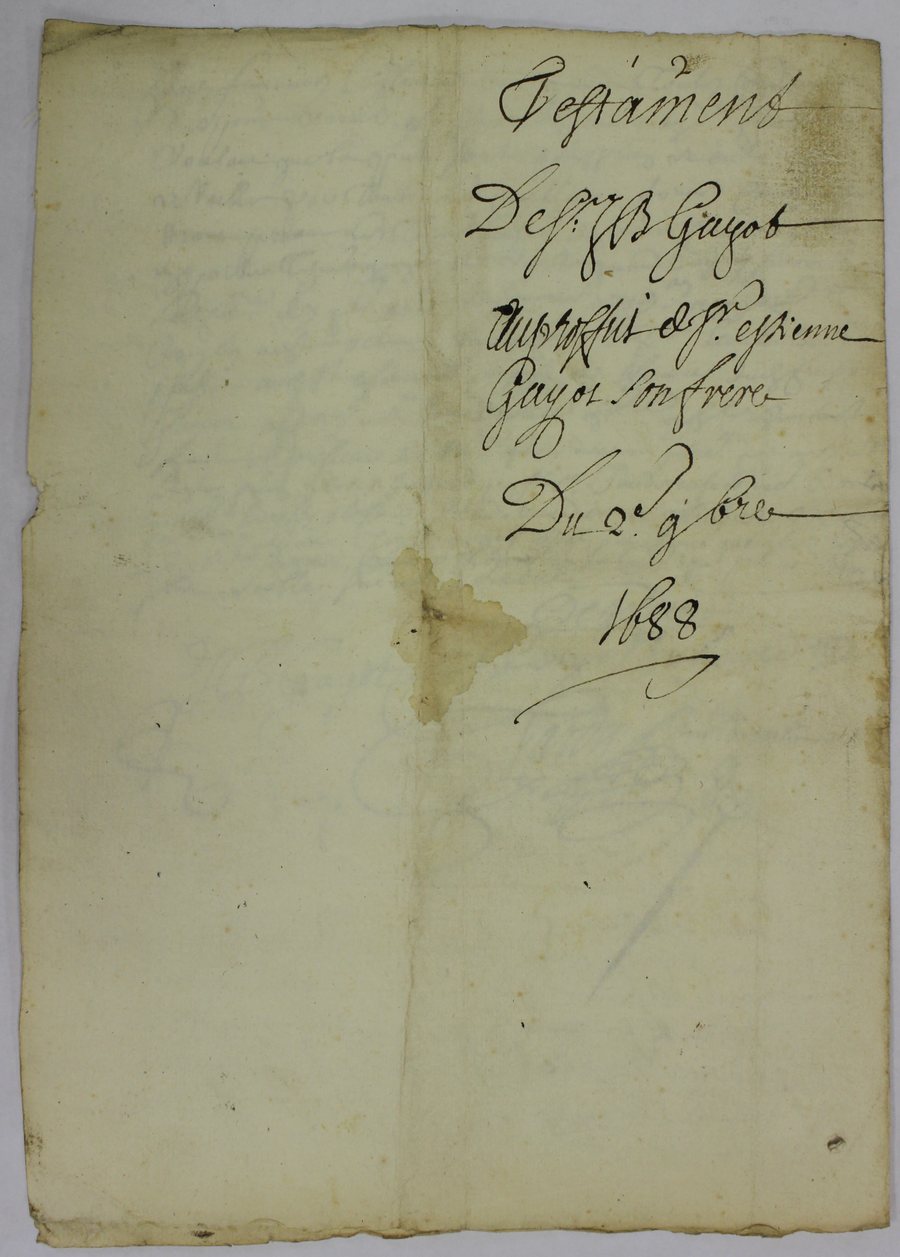 Testament
De Sr. JB Gayot
Au proffit de Sr. estienne
Gayot son frere
Du 2e. 9bre
1688